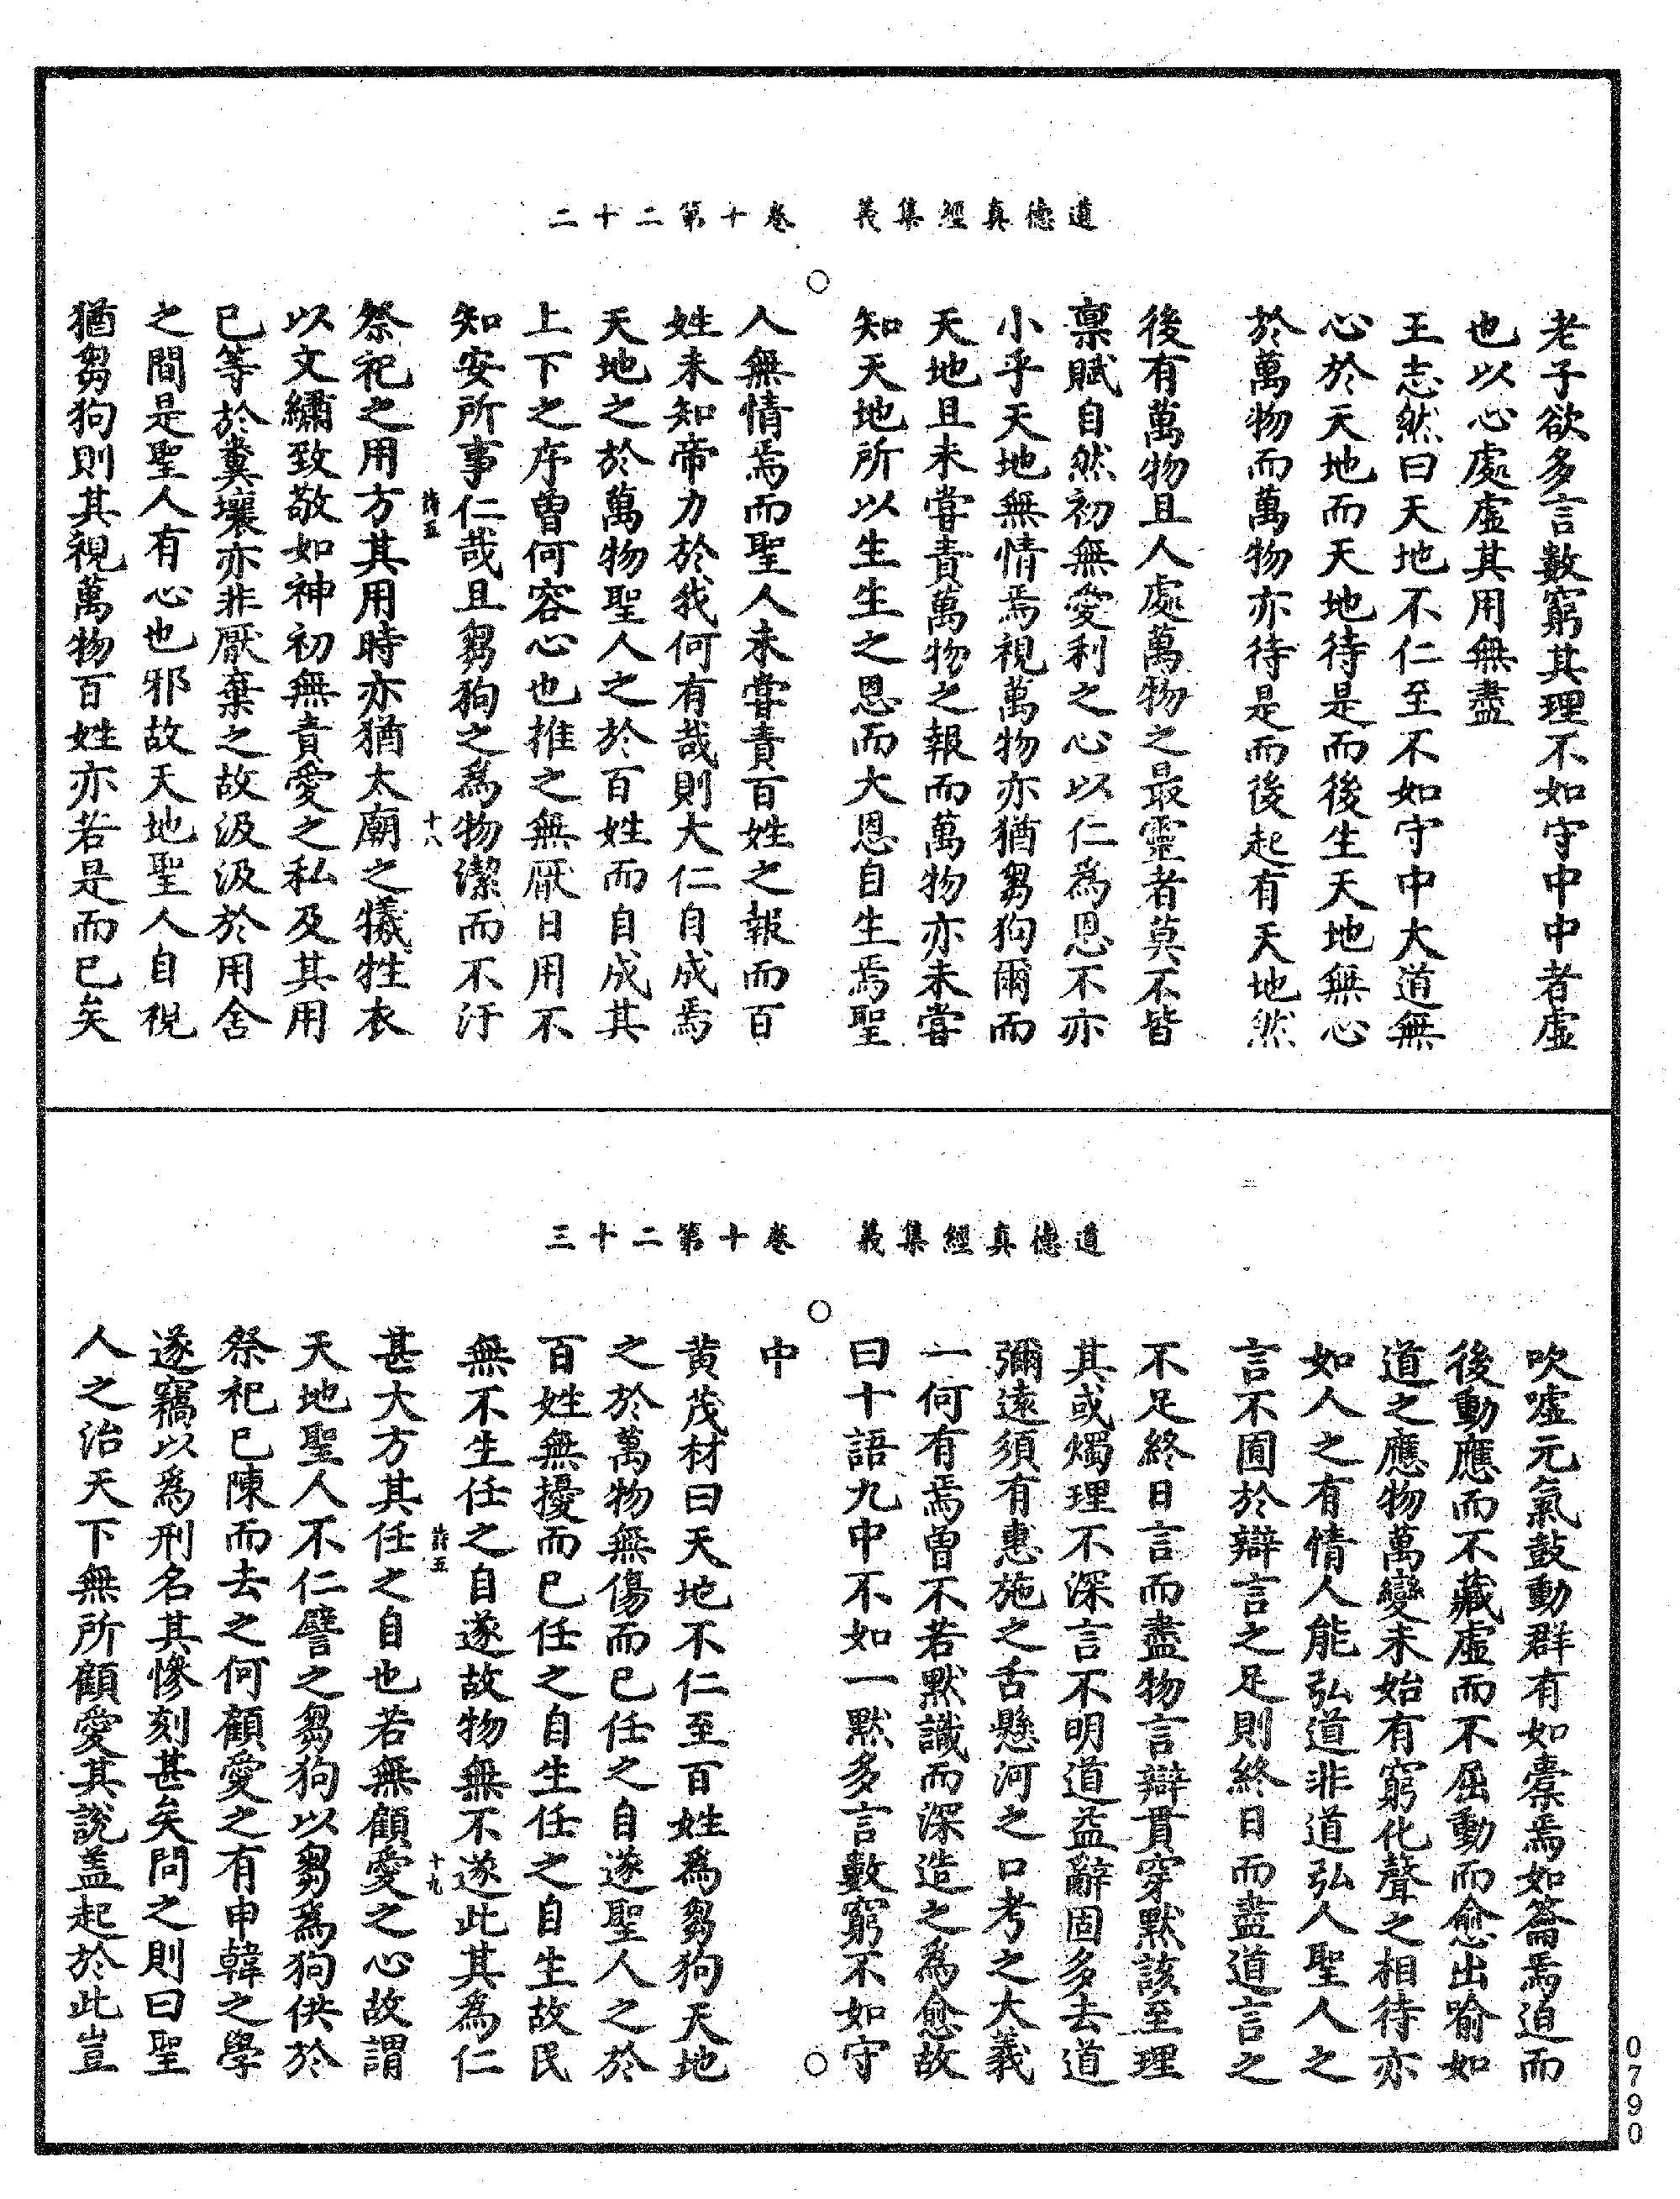 道德真經集義　卷十第二十二
老子欲多言數窮其理不如守中中者虛
也以心處虛其用無盡
王志然曰天地不仁至不如守中大道無
心於天地而天地待是而後生天地無心
於萬物而萬物亦待是而後起有天地然
後有萬物且人處萬物之最靈者莫不皆
稟賦自然初無愛利之心以仁為恩不亦
小乎天地無情焉視萬物亦猶芻狗爾而
天地且未嘗責萬物之報而萬物亦未嘗
知天地所以生生之恩而大恩自生焉聖
人無情焉而聖人未嘗責百姓之報而百
姓未知帝力於我何有哉則大仁自成焉
天地之於萬物聖人之於百姓而自成其
上下之序曾何容心也推之無厭日用不
知安所事仁哉且芻狗之為物潔而不汙
詩五　十八
祭祀之用方其用時亦猶太廟之犧牲衣
以文繡致敬如神初無責愛之私及其用
已等於糞壤亦非厭棄之故汲汲於用舍
之間是聖人有心也邪故天地聖人自視
猶芻狗則其視萬物百姓亦若是而已矣
道德真經集義　卷十第二十三
吹噓元氣鼓動群有如橐焉如籥焉迫而
後動應而不藏虛而不屈動而愈出喻如
道之應物萬變未始有窮化聲之相待亦
如人之有情人能弘道非道弘人聖人之
言不囿於辯言之足則終日而盡道言之
不足終日言而盡物言辯貫穿默該至理
其或燭理不深言不明道益辭固多去道
彌遠須有惠施之舌懸河之口考之大義
一何有焉曾不若默識而深造之為愈故
曰十語九中不如一默多言數窮不如守
中
黃茂材曰天地不仁至百姓為芻狗天地
之於萬物無傷而已任之自遂聖人之於
百姓無擾而已任之自生任之自生故民
無不生任之自遂故物無不遂此其為仁
詩五　十九
甚大方其任之自也若無顧愛之心故謂
天地聖人不仁譬之芻狗以芻為狗供於
祭祀已陳而去之何顧愛之有申韓之學
遂竊以為刑名其慘刻甚矣問之則曰聖
人之治天下無所顧愛其說盖起於此豈
0790